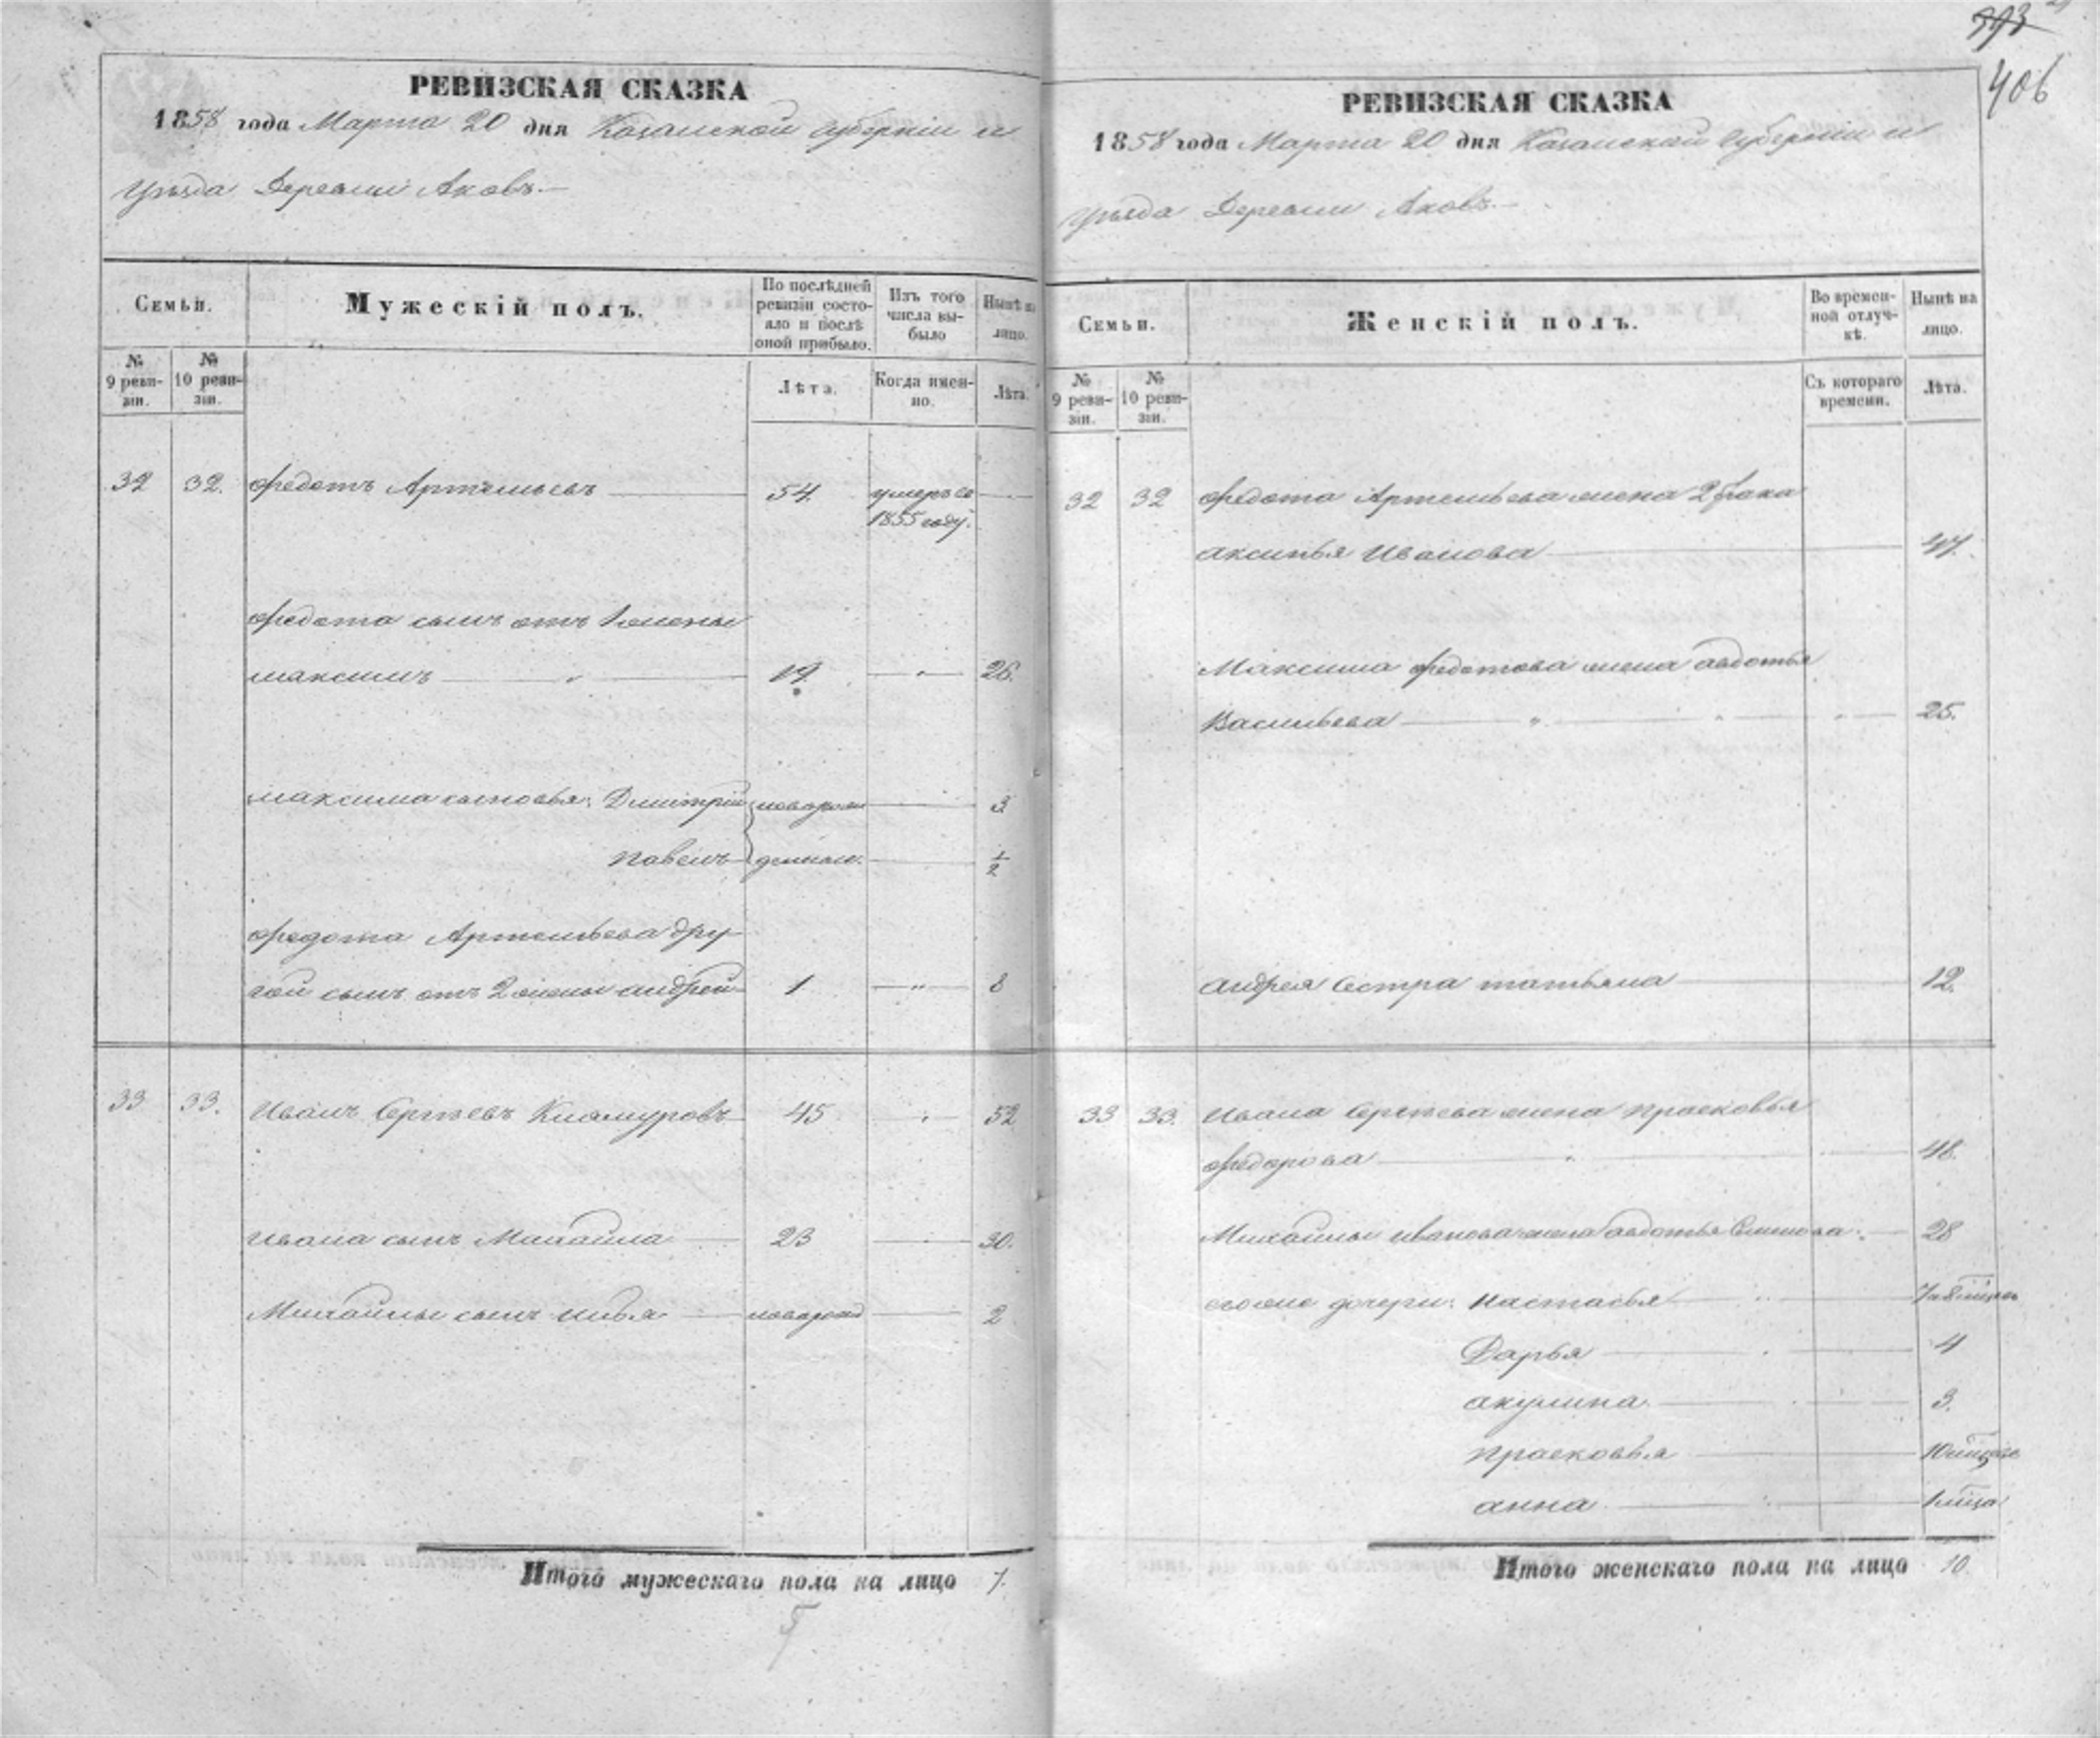 393
406
РЕВИЗСКАЯ СКАЗКА
1858 года Марта 20 дня Казанской губерніи и
уѣзда Деревни Аковъ.
Семьи.
Мужескій полъ.
По послѣдней ревизіи состояло и послѣ оной прибыло.
Изъ того числа выбыло
Нынѣ на лицо.
№ 9 ревизіи.
№ 10 ревизіи.
Лѣта.
Когда именно.
Лѣта.
32 32. Федотъ Артемьевъ 54. умеръ въ
1855 году.
Федота сынъ отъ 1 жены
Максимъ 19. 26.
Максима сыновья: Дмитрій новорож 3
Павелъ денныи. 1/2
Федота Артемьева дру
гой сынъ отъ 2 жены андрей 1 8
33 33. Иванъ Сергѣевъ 45 52
Ивана сынъ Михайла 23 30.
Михайлы сынъ Илья новорожд 2
Итого мужескаго пола на лицо 7.
РЕВИЗСКАЯ СКАЗКА
1858 года Марта 20 дня Казанской Губерніи и
уѣзда Деревни Аковъ.
Семьи.
Женскій полъ.
Во временной отлучкѣ.
Нынѣ на лицо.
№ 9 ревизіи.
№ 10 ревизіи.
Съ котораго времени.
Лѣта.
32 32 Федота Артемьева жена 2 брака
аксинья Иванова 47.
Максима Федотова жена авдотья
Васильева 25.
андрея сестра татьяна 12.
33 33. Ивана Сергѣева жена Прасковья
Федорова 48.
Михайлы иванова жена авдотья 28
его же дочери: Настасья
Дарья 4
акулина 3.
Прасковья
анна
Итого женскаго пола на лицо 10.